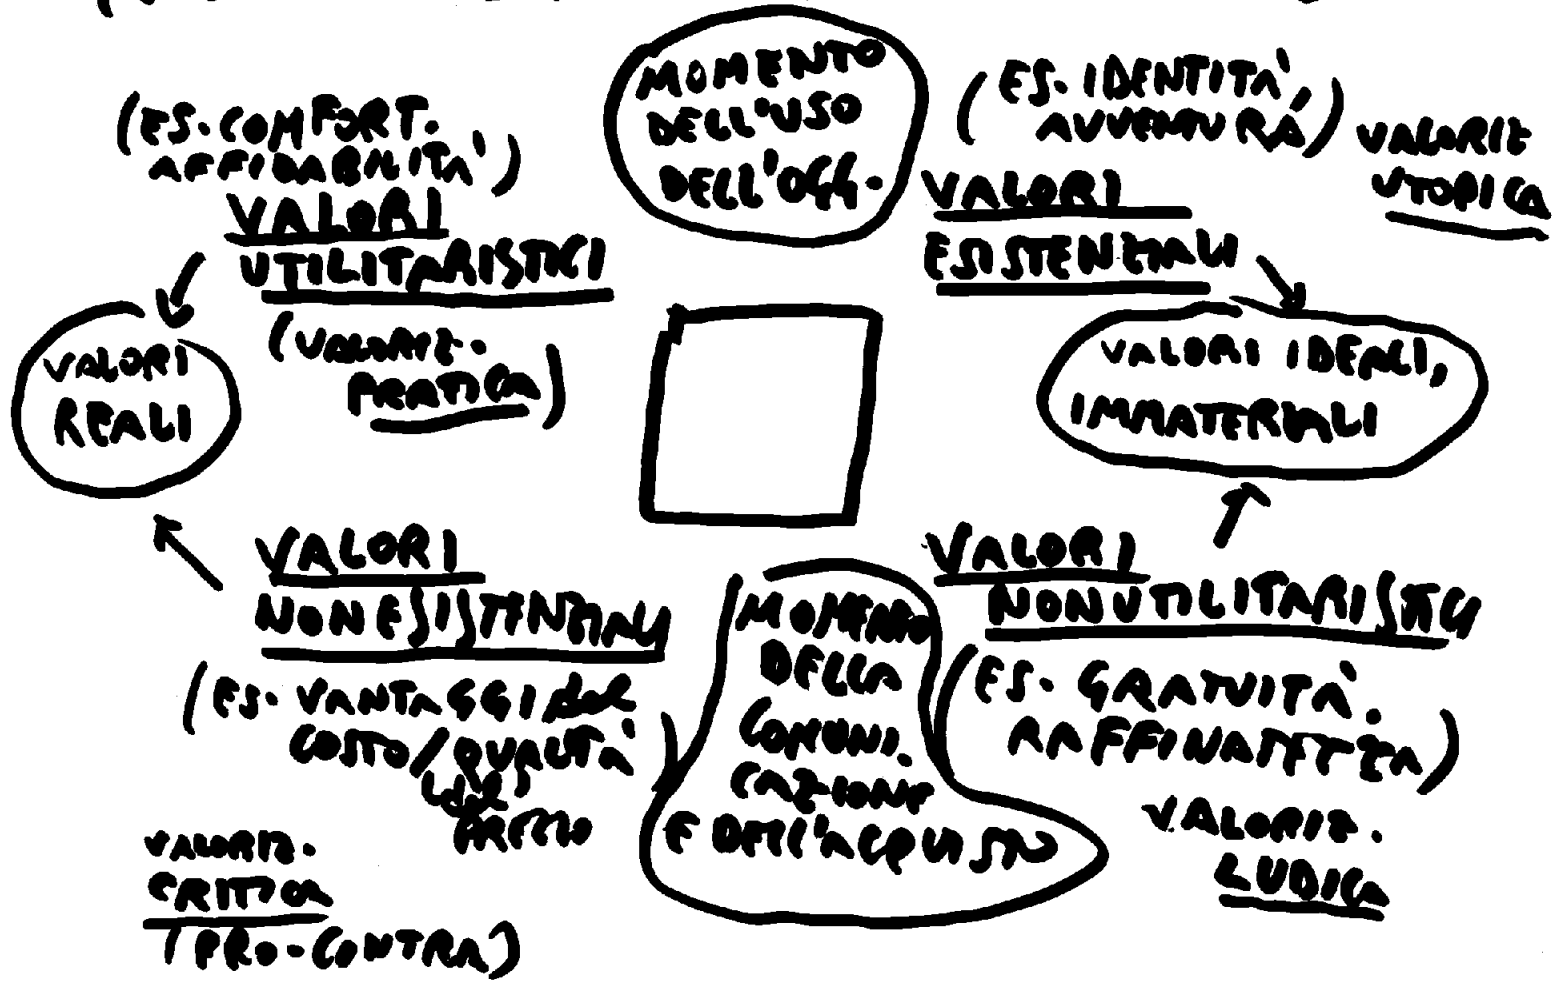 MOMENTO
DELL'USO
DELL'OGG.
(ES. COMFORT.
AFFIDABILITÀ)
VALORI
UTILITARISTICI
(VALORIZ.
PRATICA)
(ES. IDENTITÀ,
AVVENTURA)
VALORIZ
UTOPICA
VALORI
ESISTENZIALI
VALORI
REALI
VALORI IDEALI,
IMMATERIALI
VALORI
NON ESISTENZIALI
(ES. VANTAGGI del
COSTO/QUALITÀ)
del
PREZZO
VALORIZ.
CRITICA
(PRO-CONTRA)
MOMENTO
DELLA
COMUNI.
CAZIONE
E DELL'ACQUISTO
VALORI
NON UTILITARISTICI
(ES. GRATUITÀ.
RAFFINATEZZA)
VALORIZ.
LUDICA